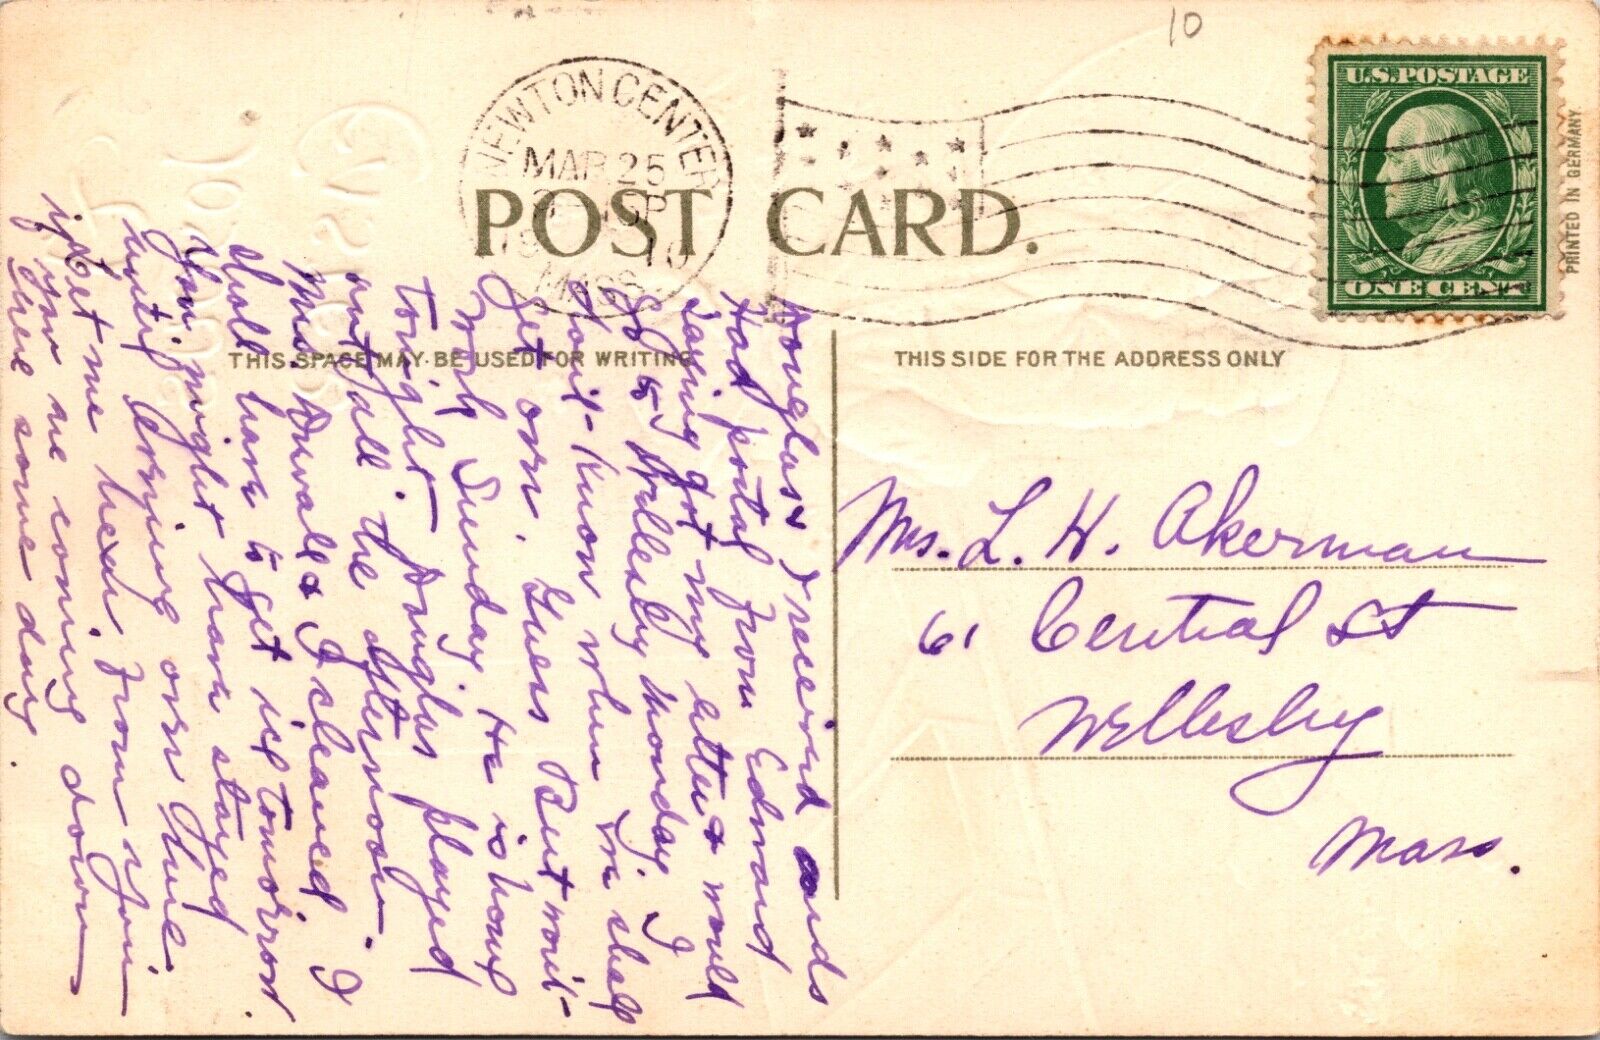 10
U.S.POSTAGE
ONE CENT
PRINTED IN GERMANY
NEWTON CENTER
MAR 25
1910
MASS.
POST CARD.
THIS SPACE MAY BE USED FOR WRITING
THIS SIDE FOR THE ADDRESS ONLY
Mrs. L. H. Akerman
61 Central St
Wellesley
Mass.
Douglas & I received cards
Had postal from Edward
saying got my letter & would
go to Wellesley Monday. I
don't know when we shall
get orr. Guess But won't
work Sunday. He is home
tonight. Douglas played
out all the afternoon.
Mrs Duvall & I cleaned I
shall have to get ice tomorrow.
You might have stayed
until Corning orr there
Let me hear from you
if you are coming down
there some day.